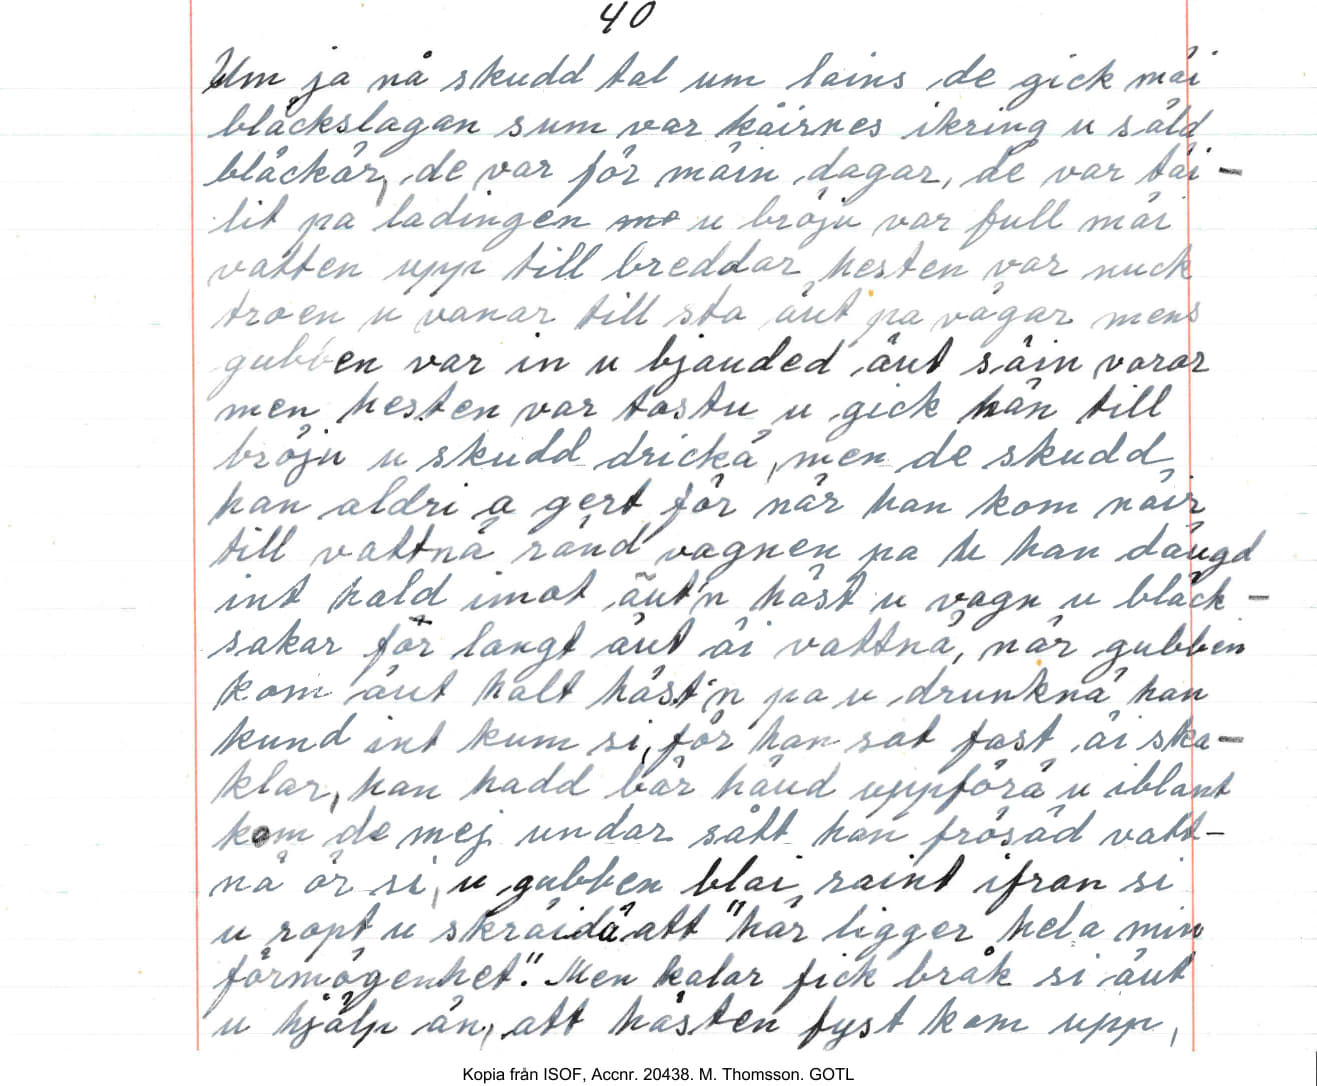 40
Um ja nå skudd tal um lains de gick mäi
bläckslagan sum var käirnes ikring u såld
bläckär, de var för mäin dagar, de var täi-
lit pa ladingen u bröju var full mäi
vatten upp till breddar hesten var nuck
troen u vanar till sta äut pa vägar mens
gubben var in u bjauded äut säin varar
men hesten var tostu u gick hän till
bröju u skudd drickä, men de skudd
han aldri a gert för när han kom näir
till vattnä ränd vagnen pa u han däugd
int hald imot äut'n häst u vagn u bläck-
sakar för langt äut äi vattnä, när gubben
kom äut halt häst'n pa u drunknä han
kund int kum si, för han sat fast äi ska-
klar, han hadd bär häud uppförä u iblant
kom de mej undar sått han fräsäd vatt-
nä ör si, u gubben blai raint ifran si
u ropt u skräidä att "här ligger hela min
förmögenhet". Men kalar fick bråk si äut
u hjälp än, att hästen fyst kom upp,
Kopia från ISOF, Accnr. 20438. M. Thomsson. GOTL